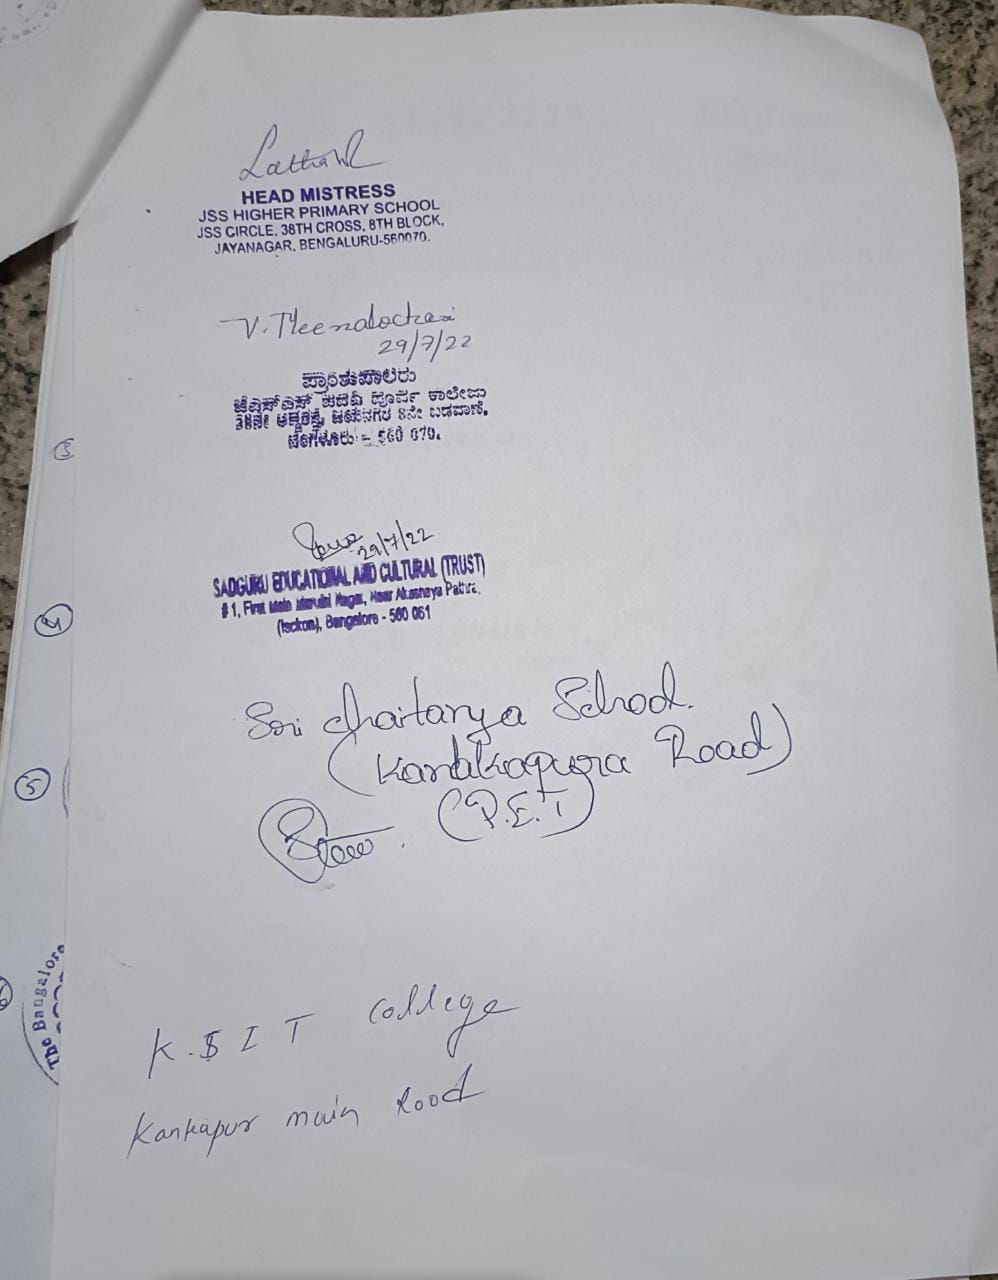 HEAD MISTRESS
JSS HIGHER PRIMARY SCHOOL
JSS CIRCLE, 38TH CROSS, 8TH BLOCK,
JAYANAGAR, BENGALURU-560070.
29/7/22
ಪ್ರಾಂಶುಪಾಲರು
ಜೆಎಸ್ಎಸ್ ಪದವಿ ಪೂರ್ವ ಕಾಲೇಜು
38ನೇ ಅಡ್ಡರಸ್ತೆ, ಜಯನಗರ 8ನೇ ಬಡಾವಣೆ,
ಬೆಂಗಳೂರು - 560 070.
29/7/22
SADGURU EDUCATIONAL AND CULTURAL (TRUST)
#1, First Main Maruthi Nagar, Near Akashaya Pathra,
(Isckon), Bangalore - 560 061
Sri Chaitanya School.
(Kanakapura Road)
(P.E.T)
K.S I T College
Kankapur main Road
3
4
5
The Bangalore